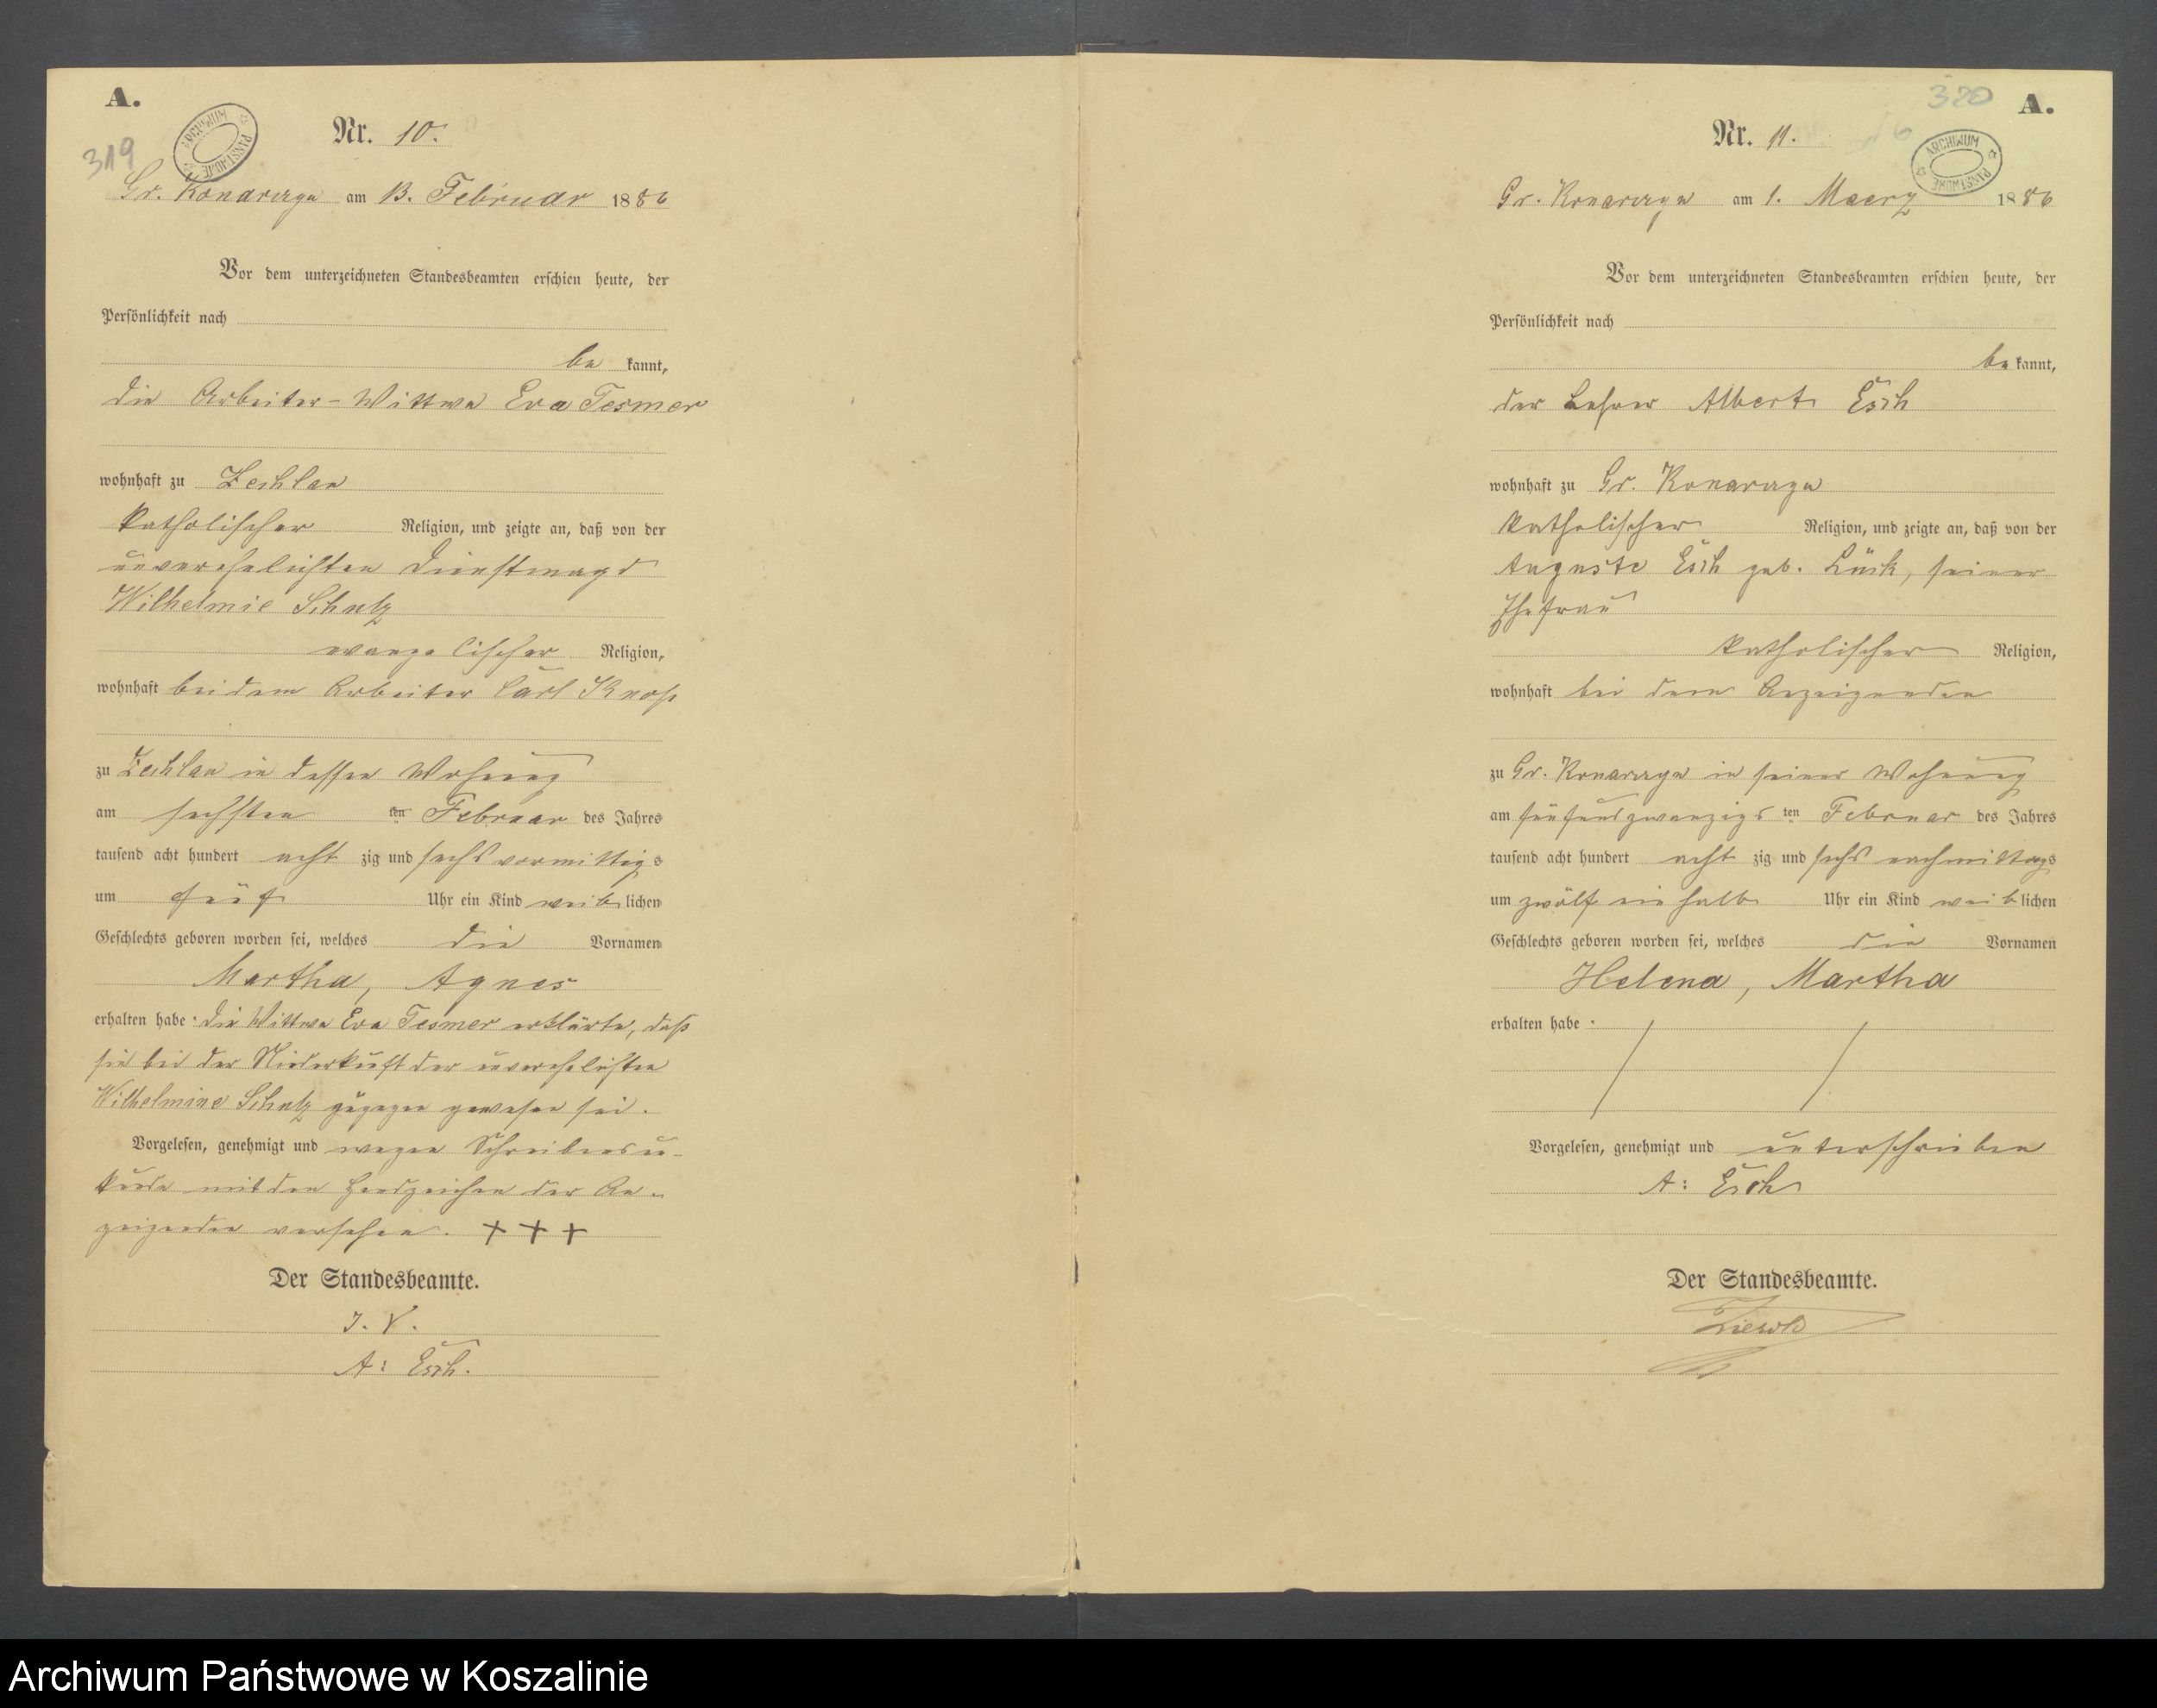 A.
319
ARCHIWUM PAŃSTWOWE
Nr. 10.
Gr. Konarczyn am 13. Februar 1886
Vor dem unterzeichneten Standesbeamten erschien heute, der
Persönlichkeit nach
be kannt,
die Arbeiter-Wittwe Eva Tesmer
wohnhaft zu Zechlau
katholischer Religion, und zeigte an, daß von der
unverehelichten Dienstmagd
Wilhelmie Schulz
evangelischer Religion,
wohnhaft bei dem Arbeiter Carl Knop
zu Zechlau in dessen Wohnung
am sechsten ten Februar des Jahres
tausend acht hundert acht zig und sechs vormittags
um fünf Uhr ein Kind weib lichen
Geschlechts geboren worden sei, welches die Vornamen
Martha, Agnes
erhalten habe. Die Wittwe Eva Tesmer erklärte, daß
sie bei der Niederkunft der unverehelichten
Wilhelmine Schulz zugegen gewesen sei.
Vorgelesen, genehmigt und wegen Schreibensun-
kunde mit den Handzeichen der An-
zeigenden versehen. + + +
Der Standesbeamte.
I. V.
A: Esch.
320
A.
ARCHIWUM PAŃSTWOWE
Nr. 11.
Gr. Konarczyn am 1. Maerz 1886
Vor dem unterzeichneten Standesbeamten erschien heute, der
Persönlichkeit nach
be kannt,
der Lehrer Albert Esch
wohnhaft zu Gr. Konarczyn
katholischer Religion, und zeigte an, daß von der
Auguste Esch geb. Lück, seiner
Ehefrau
katholischer Religion,
wohnhaft bei dem Anzeigenden
zu Gr. Konarczyn in seiner Wohnung
am fünfundzwanzigs ten Februar des Jahres
tausend acht hundert acht zig und sechs nachmittags
um zwölf ein halb Uhr ein Kind weib lichen
Geschlechts geboren worden sei, welches die Vornamen
Helena, Martha
erhalten habe.
Vorgelesen, genehmigt und unterschrieben
A: Esch
Der Standesbeamte.
Archiwum Państwowe w Koszalinie